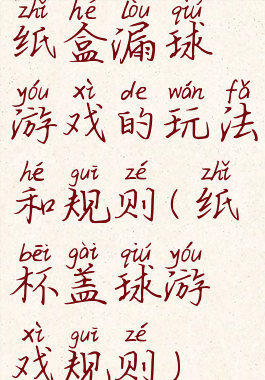 zhǐ hé lòu qiú
纸盒漏球
yóu xì de wán fǎ
游戏的玩法
hé guī zé zhǐ
和规则(纸
bēi gài qiú yóu
杯盖球游
xì guī zé
戏规则)